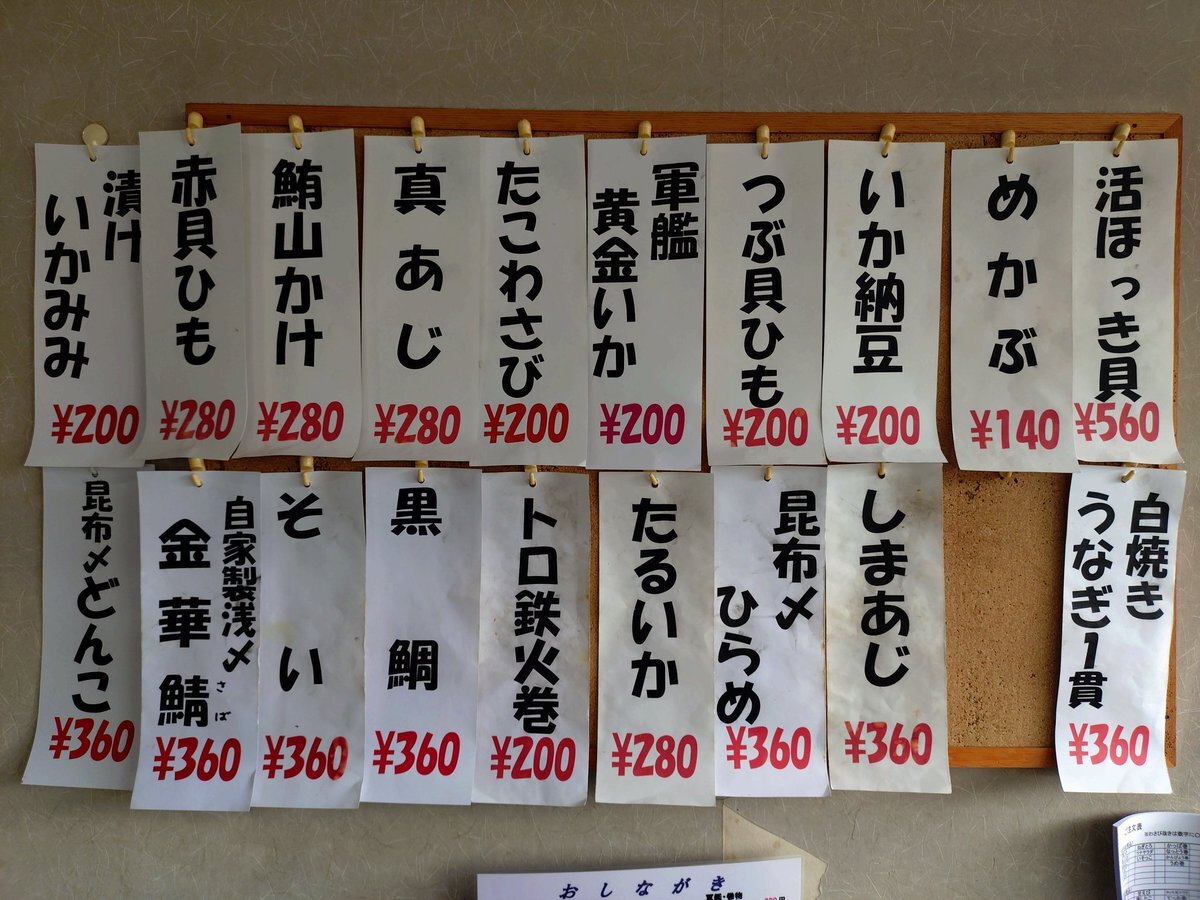 活ほっき貝
¥560
めかぶ
¥140
いか納豆
¥200
つぶ貝ひも
¥200
軍艦
黄金いか
¥200
たこわさび
¥200
真あじ
¥280
鮪山かけ
¥280
赤貝ひも
¥280
漬け
いかみみ
¥200
白焼き
うなぎ1貫
¥360
しまあじ
¥360
昆布〆
ひらめ
¥360
たるいか
¥280
トロ鉄火巻
¥200
黒鯛
¥360
そい
¥360
自家製浅〆
金華鯖
さば
¥360
昆布〆どんこ
¥360
おしながき
軍艦・巻物
ご注文表